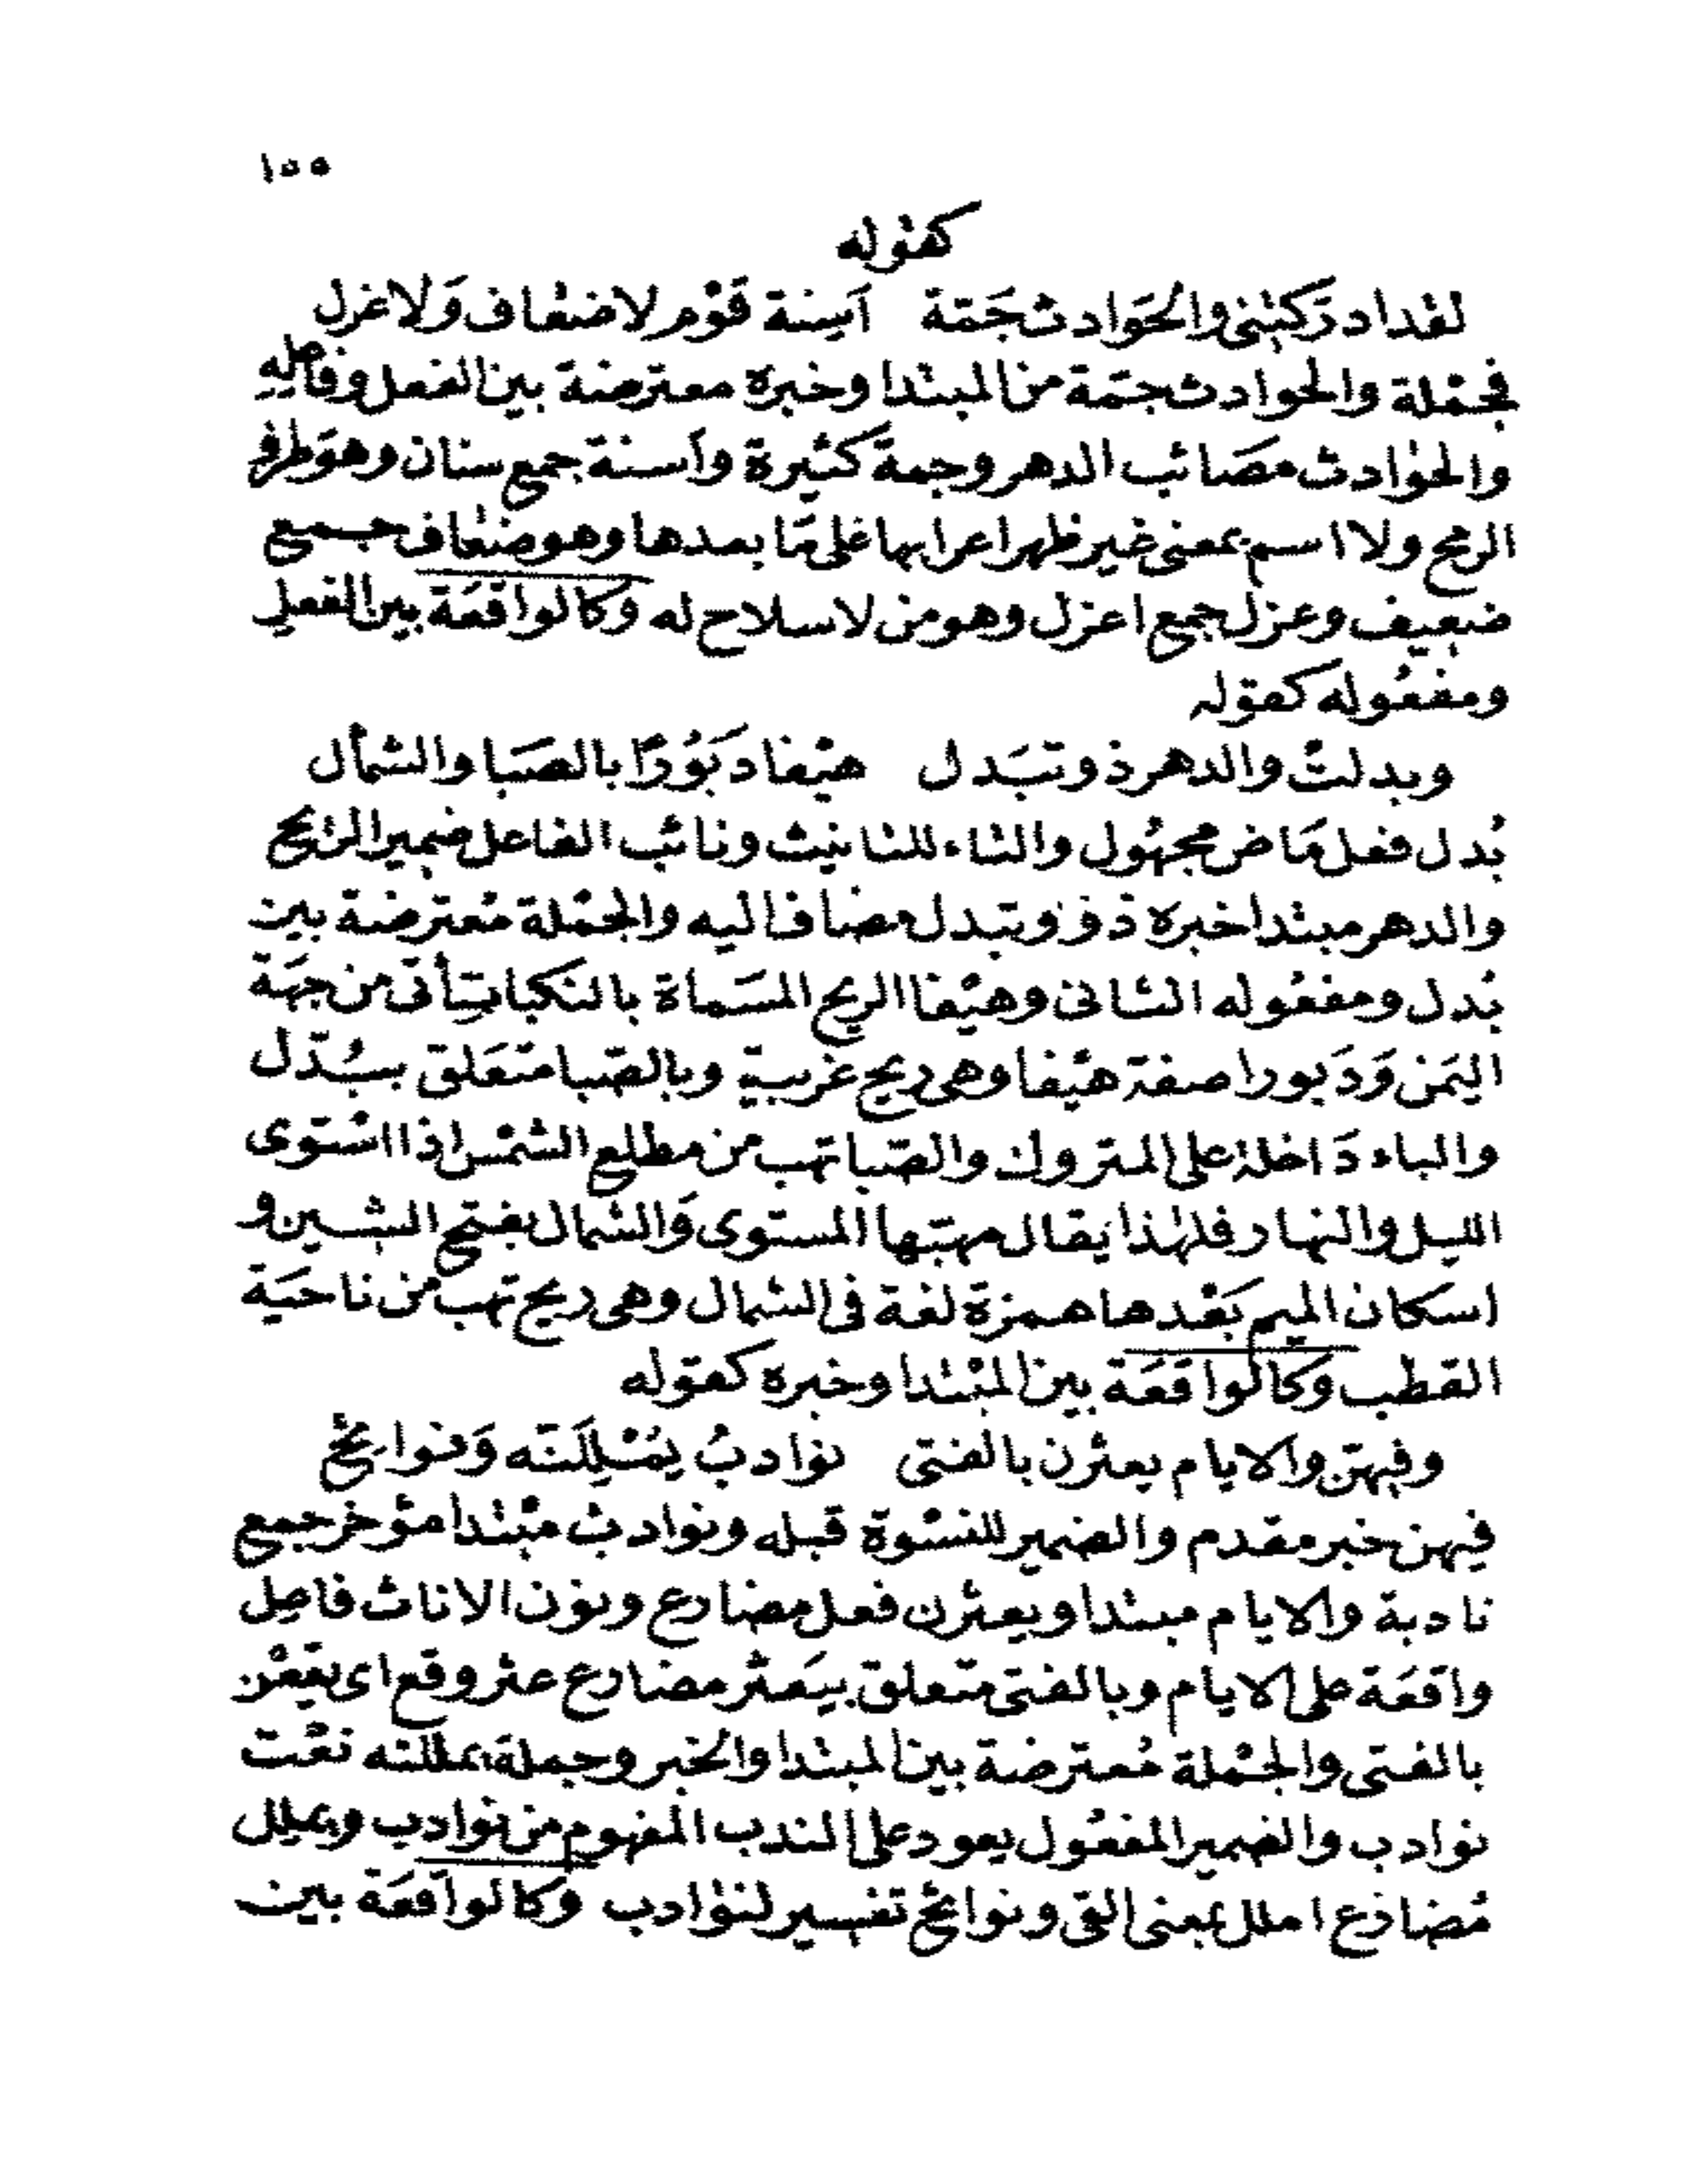 ١٥٥
كقوله
لقد ادركتني والحَوادث جَمّة آسِنة قَوْم لا ضعاف وَلا عزل
فجمْلة والحوادث جمّة من المبتدا وخبره معترضة بين الفعل وفاعلِهِ
والحوادث مصَائب الدهر وجمة كثيرة وآسنة جمع سنان وهوَ طرف
الرمح ولا اسم بمعنى غير ظهر اعرابها على مَا بعدها وهو ضعاف جمع
ضعيف وعزل جمع اعزل وهو من لا سلاح له وكالواقعَة بين الفعلِ
ومفعُوله كقوله
وبدلتْ والدهر ذو تبَدل هيْفا دَبوُرًا بالصَبا والشمأل
بُدل فعل مَاض مجهُول والتاء للتانيث ونائب الفاعل ضمير الريح
والدهر مبتدا خبره ذو وتبدل مضافا اليه والجمْلة مُعترضة بين
بُدل ومفعُوله الثانى وهيْفا الريح المسَماة بالنكبا تأتى من جهَة
اليَمن وَدَبورا صفة هيْفا وهى ريح غربية وبالصّبا متعَلق ببُدّل
والباء دَاخلة على المتروك والصّبا تهب من مطلع الشمْس اذا اسْتوى
الليل والنهار فلهٰذا يقال مهبّها المستوى وَالشمال بفتح الشين و
اسكان الميم بَعْدها همزة لغة فى الشمال وهى ريح تهب من ناحيَة
القطب وكالواقعَة بين المبْتدا وخبره كقوله
وفيهنّ والايام يعثرن بالفتى نوادبُ يَمْلِلَنَه وَنوائحُ
فيهن خبر مقدم والضمير للنسْوة قبله ونوادب مبْتدا مؤخر جمع
نادبة والايام مبتدا ويعثرن فعل مضارع ونون الاناث فاعِل
واقعَة على الايام وبالفتى متعلق بيَعثر مضارع عثر وقع اى يقعْن
بالفتى والجمْلة مُعترضة بين المبتدا والخبر وجملة يمللنه نعْت
نوادب والضمير المفعُول يعود على الندب المفهوم من نوادب ويملل
مُضارع املل بمعنى القى ونوائحُ تفسير لنوٰادب وكالواقعَة بين